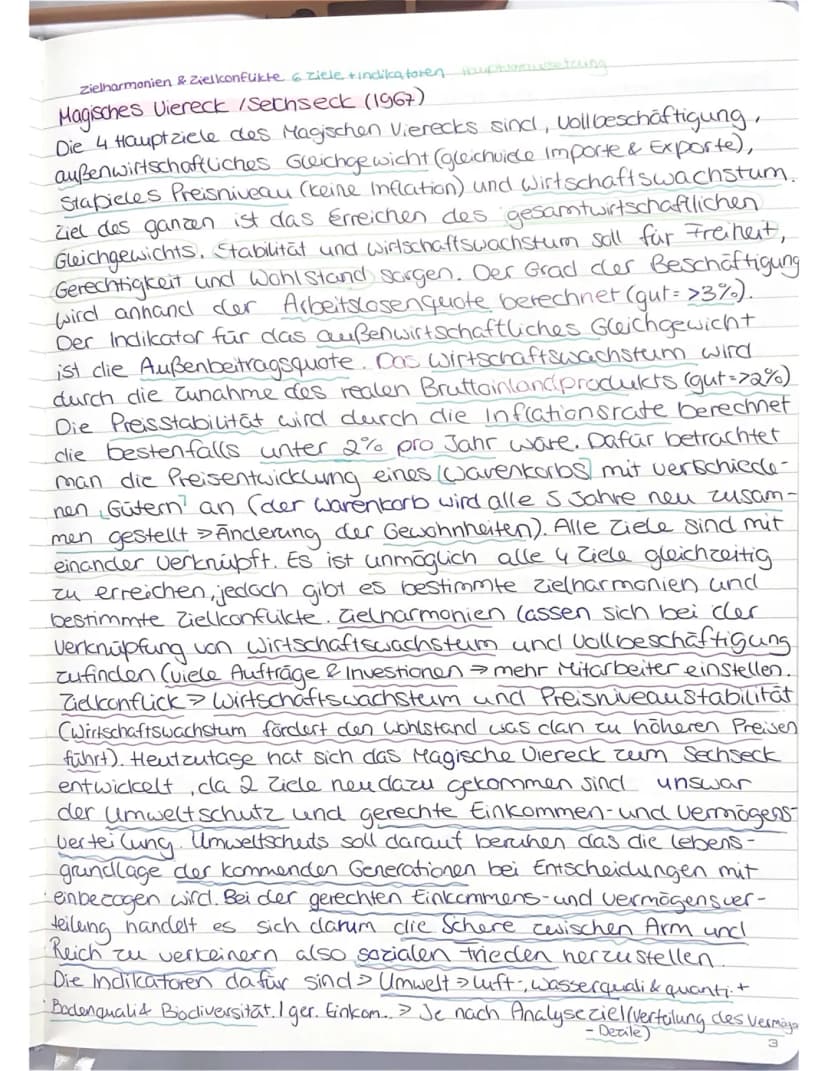 Zielharmonien & Zielkonflikte 6 Ziele + Indikatoren Hauptvoraussetzung
Magisches Viereck / Sechseck (1967)
Die 4 Hauptziele des Magischen Vierecks sind, Vollbeschäftigung,
außenwirtschaftliches Gleichgewicht (gleichviele Importe & Exporte),
Stabieles Preisniveau (keine Inflation) und Wirtschaftswachstum.
Ziel des ganzen ist das Erreichen des gesamtwirtschaftlichen
Gleichgewichts. Stabilität und Wirtschaftswachstum soll für Freiheit,
Gerechtigkeit und Wohlstand sorgen. Der Grad der Beschäftigung
wird anhand der Arbeitslosenquote berechnet (gut = >3%).
Der Indikator für das außenwirtschaftliches Gleichgewicht
ist die Außenbeitragsquote. Das Wirtschaftswachstum wird
durch die Zunahme des realen Bruttoinlandprodukts (gut=>2%)
Die Preisstabilität wird durch die Inflationsrate berechnet
die bestenfalls unter 2% pro Jahr wäre. Dafür betrachtet
man die Preisentwicklung eines (Warenkorbs) mit verschiede-
nen "Gütern" an (der Warenkorb wird alle 5 Jahre neu zusam-
men gestellt > Änderung der Gewohnheiten). Alle Ziele sind mit
einander verknüpft. Es ist unmöglich alle 4 Ziele gleichzeitig
zu erreichen, jedoch gibt es bestimmte Zielharmonien und
bestimmte Zielkonflikte. Zielharmonien lassen sich bei der
Verknüpfung von Wirtschaftswachstum und Vollbeschäftigung
zufinden (viele Aufträge & Investionen => mehr Mitarbeiter einstellen.
Zielkonflick > Wirtschaftswachstum und Preisniveaustabilität
(Wirtschaftswachstum fördert den Wohlstand was dan zu höheren Preisen
führt). Heutzutage hat sich das Magische Viereck zum Sechseck
entwickelt, da 2 Ziele neu dazu gekommen sind unswar
der Umweltschutz und gerechte Einkommen- und Vermögens-
verteilung. Umweltschuts soll darauf beruhen das die lebens-
grundlage der kommenden Generationen bei Entscheidungen mit
einbezogen wird. Bei der gerechten Einkommens- und vermögensver-
teilung handelt es sich darum die Schere zwischen Arm und
Reich zu verkeinern also sozialen frieden herzustellen.
Die Indikatoren dafür sind > Umwelt > Luft-, wasserquali & quanti. +
Bodenquali & Biodiversität. / ger. Einkom.. > Je nach Analyseziel (vertalung des Vermöge
- Dezile)
3